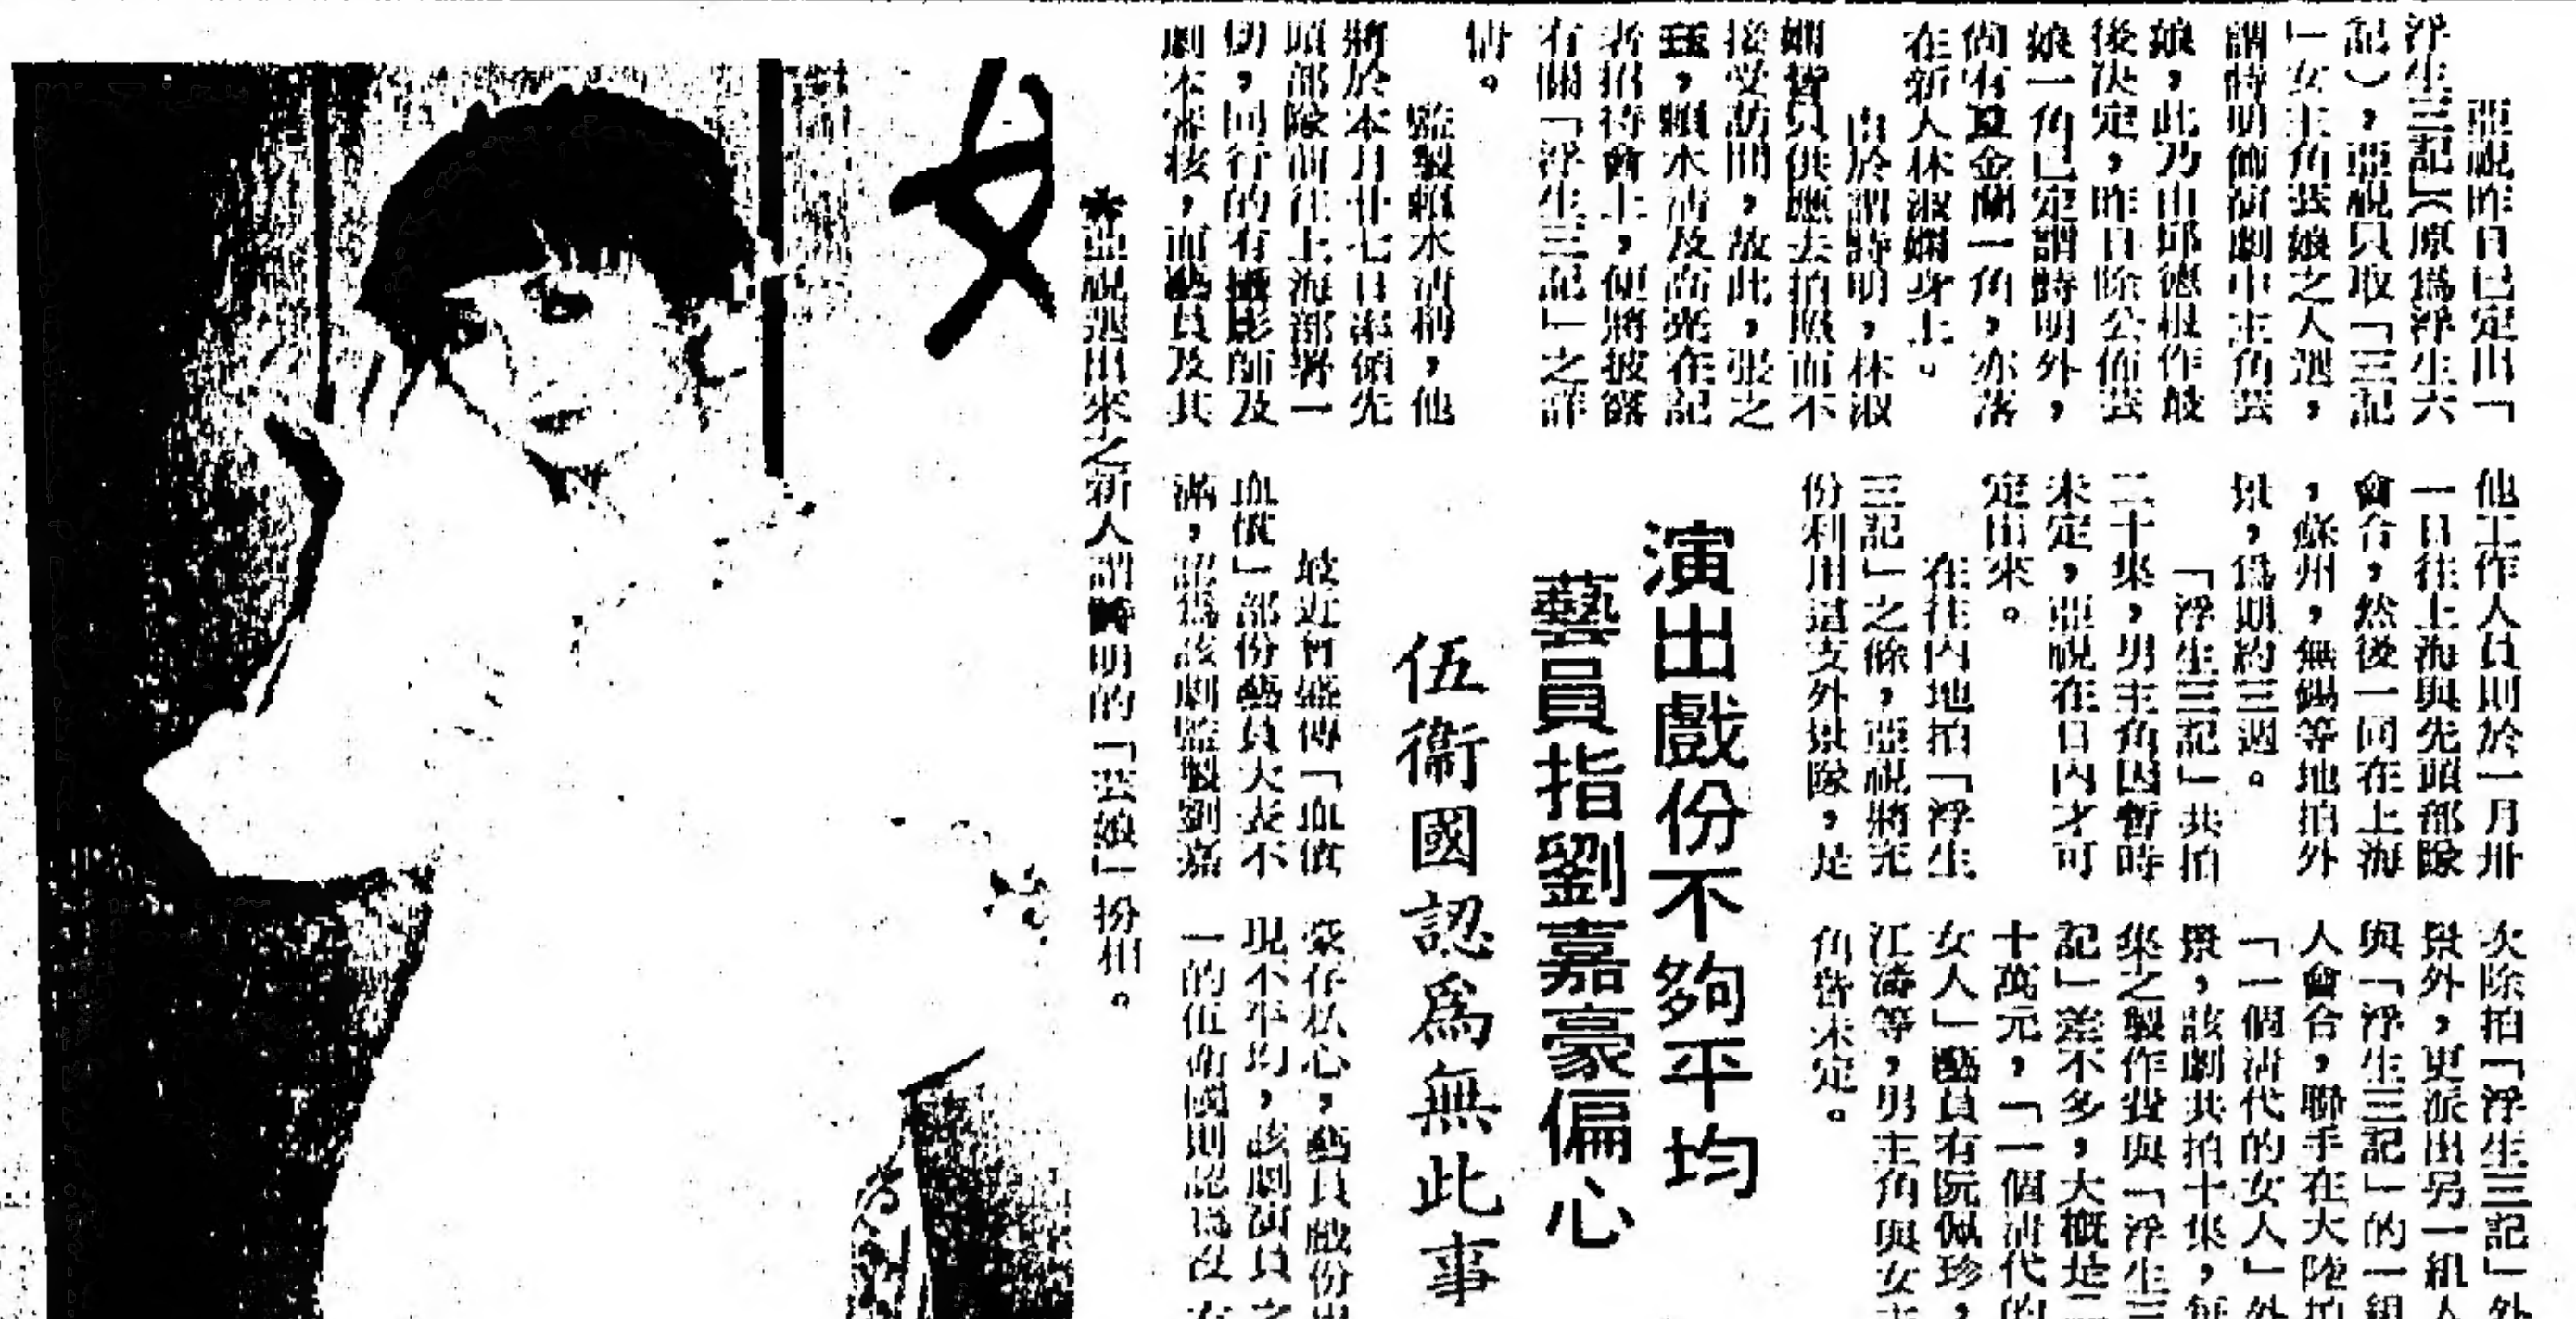 亞視昨日已定出「
浮生三記】(原爲浮生六
記),亞視只取「三記
」女主角芸娘之人選,
謂時明飾演劇中主角芸
娘,此乃由邱德根作最
後決定,昨日除公佈芸
娘一角已定謂時明外,
尚有夏金蘭一角,亦落
在新人林淑嫻身上。
由於謂時明,林淑
嫻皆只供應去拍照而不
接受訪問,故此,張之
珏,賴水清及高亮在記
者招待會上,便將披露
有關「浮生三記」之詳
情。
監製賴水清稱,他
將於本月廿七日率領先
頭部隊前往上海部署一
切,同行的有攝影師及
劇本審核,而藝員及其
他工作人員則於一月卅
一日往上海與先頭部隊
會合,然後一同在上海
,蘇州,無錫等地拍外
景,爲期約三週。
「浮生三記」共拍
二十集,男主角因暫時
未定,亞視在日內才可
定出來。
在往內地拍「浮生
三記」之餘,亞視將充
份利用這支外景隊,是
次除拍「浮生三記」外
景外,更派出另一組人
與「浮生三記」的一組
人會合,聯手在大陸拍
「一個清代的女人」外
景,該劇共拍十集,每
集之製作費與「浮生三
記」差不多,大概是二
十萬元,「一個清代的
女人」藝員有阮佩珍,
江濤等,男主角與女主
角皆未定。
演出戲份不夠平均
藝員指劉嘉豪偏心
伍衞國認爲無此事
最近暫盛傳「血債
血償」部份藝員大表不
滿,認爲該劇監製劉嘉
豪存私心,藝員戲份出
現不平均,該劇演員之
一的伍衞國則認爲沒有
女
*亞視選出來之新人謂時明的「芸娘」扮相。